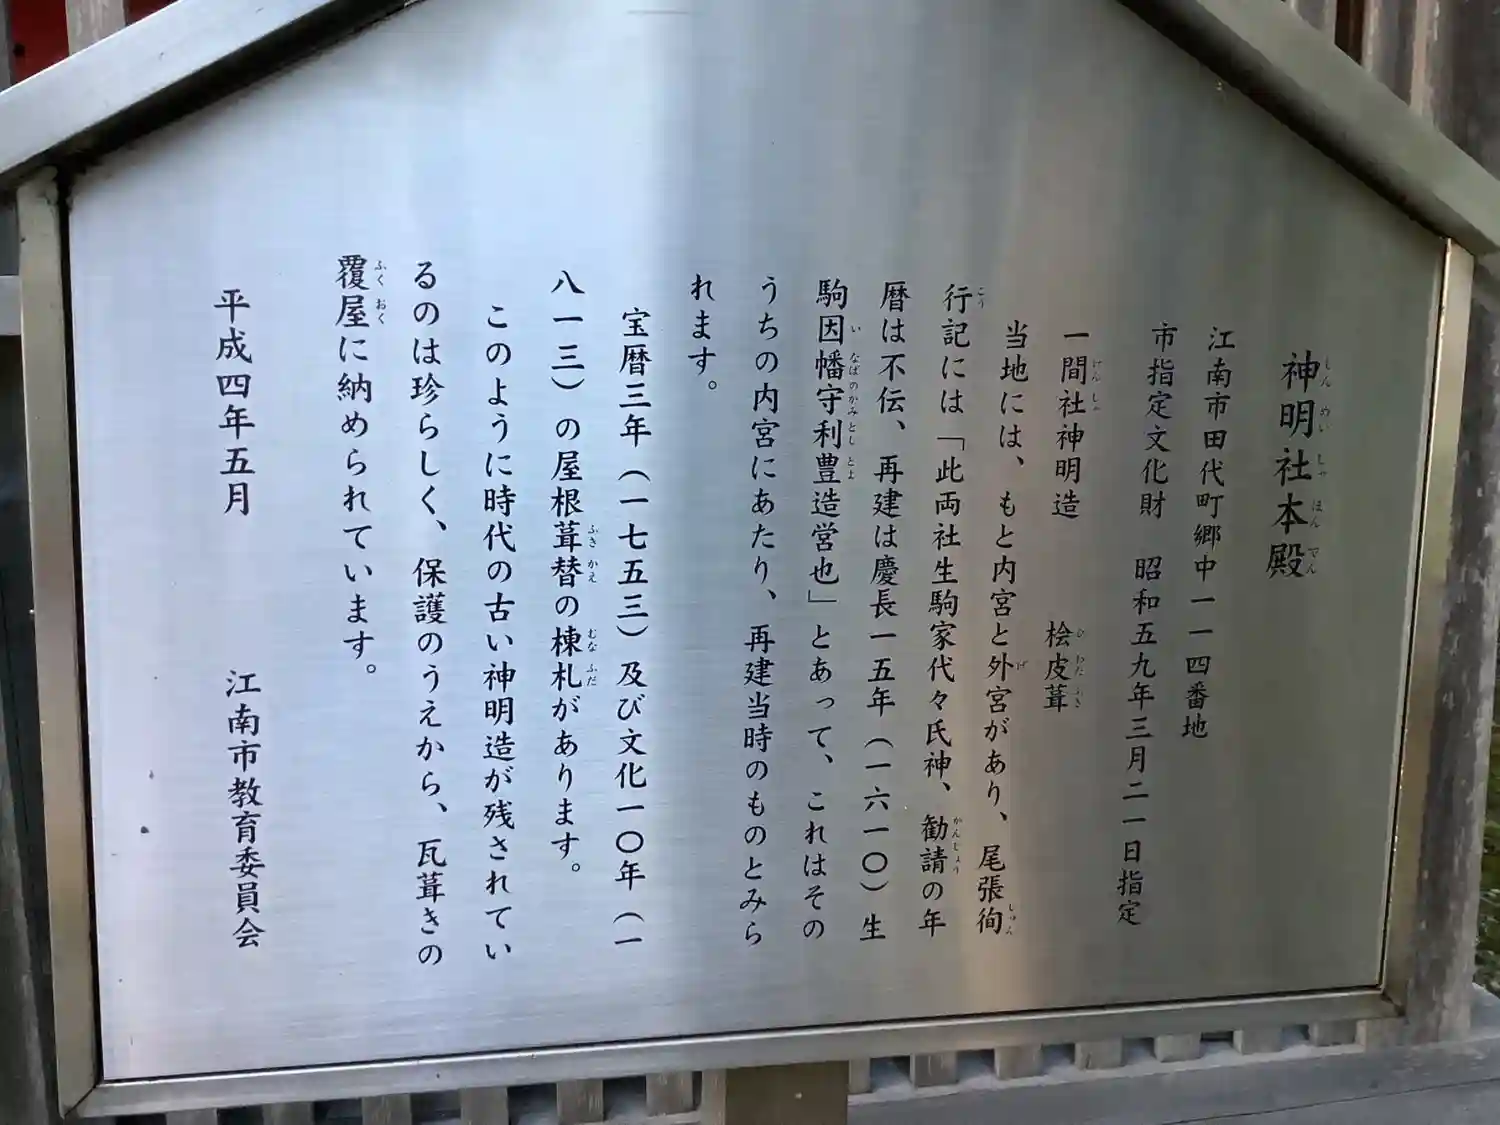 神明社本殿
江南市田代町郷中一一四番地
市指定文化財　昭和五九年三月二一日指定
一間社神明造　桧皮葺
当地には、もと内宮と外宮があり、尾張徇
行記には「此両社生駒家代々氏神、勧請の年
暦は不伝、再建は慶長一五年（一六一〇）生
駒因幡守利豊造営也」とあって、これはその
うちの内宮にあたり、再建当時のものとみら
れます。
宝暦三年（一七五三）及び文化一〇年（一
八一三）の屋根葺替の棟札があります。
このように時代の古い神明造が残されてい
るのは珍らしく、保護のうえから、瓦葺きの
覆屋に納められています。
平成四年五月　江南市教育委員会